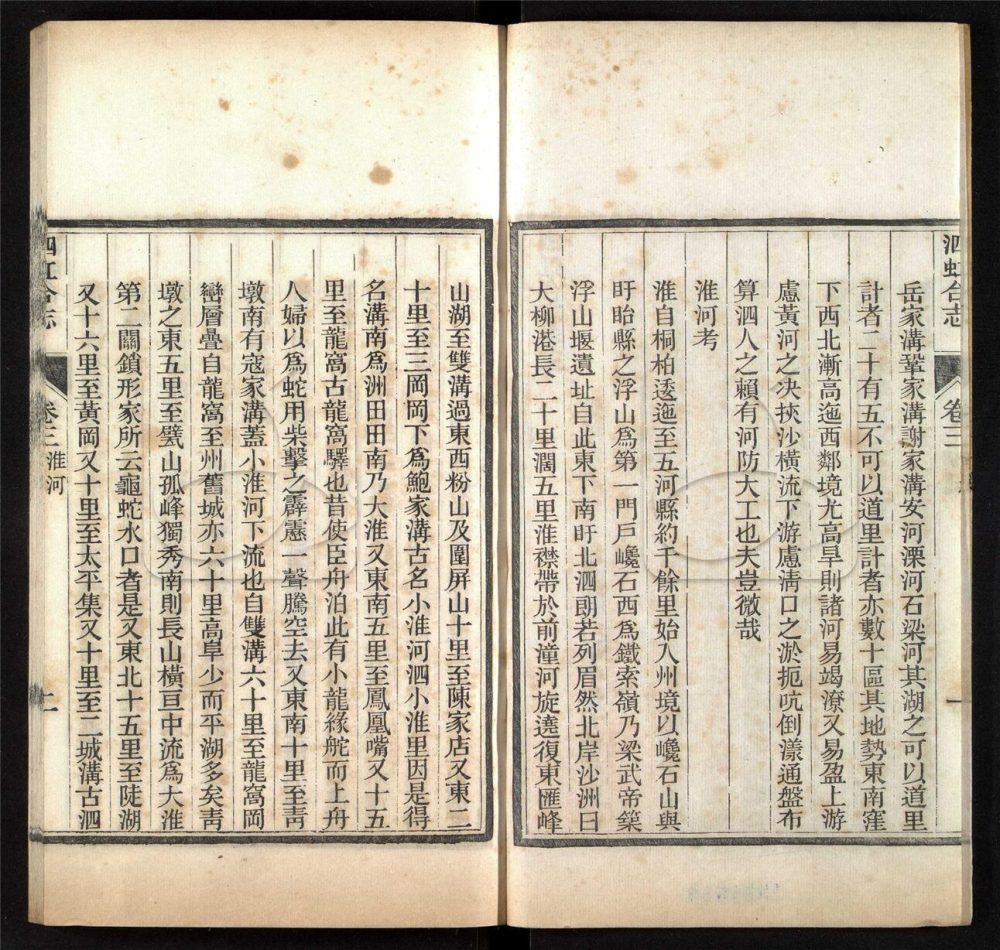 泗虹合志
卷三
一
岳家溝鞏家溝謝家溝安河溧河石梁河其湖之可以道里
計者二十有五不可以道里計者亦數十區其地勢東南窪
下西北漸高迤西鄰境尤高旱則諸河易竭潦又易盈上游
慮黃河之決挾沙橫流下游慮淸口之淤扼吭倒漾通盤布
算泗人之賴有河防大工也夫豈微哉
淮河考
淮自桐柏逶迤至五河縣約千餘里始入州境以巉石山與
盱眙縣之浮山爲第一門戶巉石西爲鐵索嶺乃梁武帝築
浮山堰遺址自此東下南盱北泗朗若列眉然北岸沙洲曰
大柳港長二十里濶五里淮襟帶於前潼河旋遶復東匯峰
山湖至雙溝過東西粉山及圍屛山十里至陳家店又東二
十里至三岡岡下爲鮑家溝古名小淮河泗小淮里因是得
名溝南爲洲田田南乃大淮又東南五里至鳳凰嘴又十五
里至龍窩古龍窩驛也昔使臣舟泊此有小龍緣舵而上舟
人婦以爲蛇用柴擊之霹靂一聲騰空去又東南十里至靑
墩南有寇家溝蓋小淮河下流也自雙溝六十里至龍窩岡
巒層疊自龍窩至州舊城亦六十里高阜少而平湖多矣靑
墩之東五里至甓山孤峰獨秀南則長山橫亘中流爲大淮
第二關鎖形家所云龜蛇水口者是又東北十五里至陡湖
又十六里至黃岡又十里至太平集又十里至二城溝古泗
泗虹合志
卷三 淮河
二